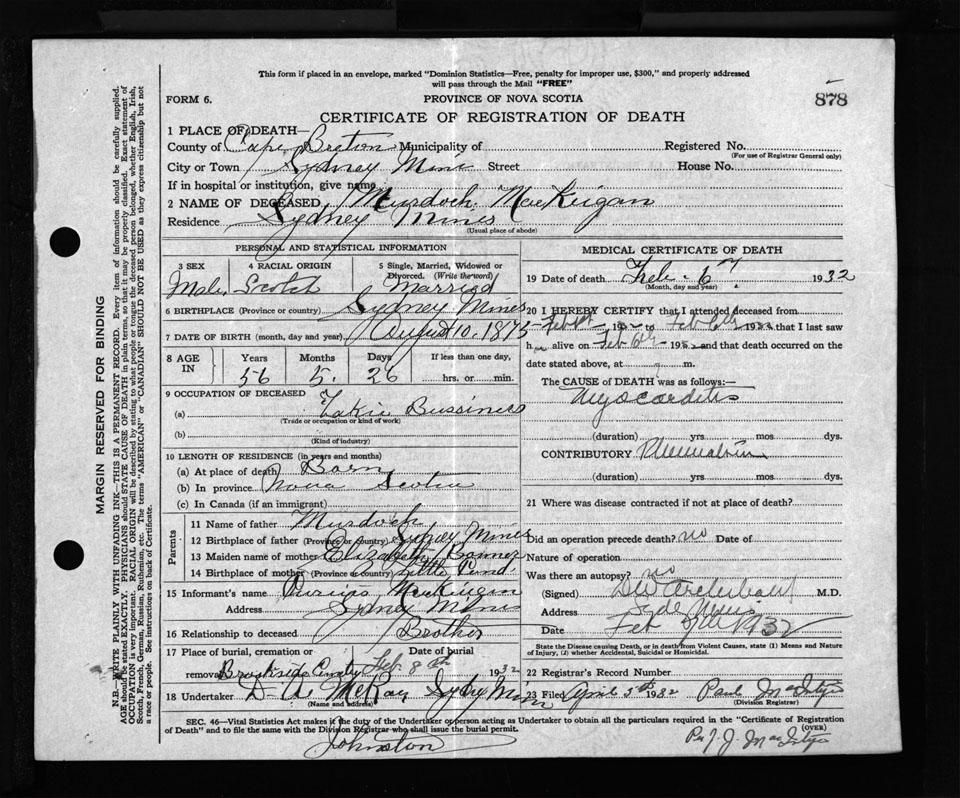 This form if placed in an envelope, marked "Dominion Statistics—Free, penalty for improper use, $300," and properly addressed
will pass through the Mail "FREE"
FORM 6.
PROVINCE OF NOVA SCOTIA
878
CERTIFICATE OF REGISTRATION OF DEATH
1 PLACE OF DEATH—
County of Cape Breton Municipality of Registered No.
(For use of Registrar General only)
City or Town Sydney Mines Street House No.
If in hospital or institution, give name
2 NAME OF DECEASED Murdoch MacKeigan
Residence Sydney Mines
(Usual place of abode)
PERSONAL AND STATISTICAL INFORMATION
3 SEX 4 RACIAL ORIGIN 5 Single, Married, Widowed or Divorced. (Write the word)
Male Scotch Married
6 BIRTHPLACE (Province or country) Sydney Mines
7 DATE OF BIRTH (month, day and year) August 10. 1875
8 AGE IN Years Months Days If less than one day,
56 5. 26 hrs. or min.
9 OCCUPATION OF DECEASED
(a) Bussiness
(Trade or occupation or kind of work)
(b)
(Kind of industry)
10 LENGTH OF RESIDENCE (in years and months)
(a) At place of death Born
(b) In province Nova Scotia
(c) In Canada (if an immigrant)
Parents
11 Name of father Murdoch
12 Birthplace of father (Province or country) Sydney Mines
13 Maiden name of mother Elizabeth
14 Birthplace of mother (Province or country) Little Pond
15 Informant's name MacKeigan
Address Sydney Mines
16 Relationship to deceased Brother
17 Place of burial, cremation or removal Date of burial
Brookside Feb. 8th 1932
18 Undertaker D. A. McRay Sydney Mines
(Name and address)
MEDICAL CERTIFICATE OF DEATH
19 Date of death Feb. 6th 1932
(Month, day and year)
20 I HEREBY CERTIFY that I attended deceased from
Feb 193 to Feb 6th 1932 that I last saw
h alive on Feb 6th 1932 and that death occurred on the
date stated above, at m.
The CAUSE of DEATH was as follows:—
Myocarditis
(duration) yrs mos dys.
CONTRIBUTORY Rheumatism
(duration) yrs mos dys.
21 Where was disease contracted if not at place of death?
Did an operation precede death? no Date of
Nature of operation
Was there an autopsy? no
(Signed) M.D.
Address Syd Mines
Date Feb 1932
State the Disease causing Death, or in death from Violent Causes, state (1) Means and Nature
of Injury, (2) whether Accidental, Suicidal or Homicidal.
22 Registrar's Record Number
23 Filed April 5th 1932
(Division Registrar)
SEC. 46—Vital Statistics Act makes it the duty of the Undertaker or person acting as Undertaker to obtain all the particulars required in the "Certificate of Registration
of Death" and to file the same with the Division Registrar who shall issue the burial permit.
(OVER)
Johnston
Per J. J.
MARGIN RESERVED FOR BINDING
N.B.—WRITE PLAINLY WITH UNFADING INK—THIS IS A PERMANENT RECORD. Every item of information should be carefully supplied.
AGE should be stated EXACTLY. PHYSICIANS should STATE CAUSE OF DEATH in plain terms, so that it may be properly classified. Exact statement of
OCCUPATION is very important. RACIAL ORIGIN will be described by stating to what people or tongue the deceased person belonged, whether English, Irish,
Scotch, French, German, Russian, Ruthenian, etc. The terms "AMERICAN" or "CANADIAN" SHOULD NOT BE USED as they express citizenship but not
a race or people. See instructions on back of Certificate.